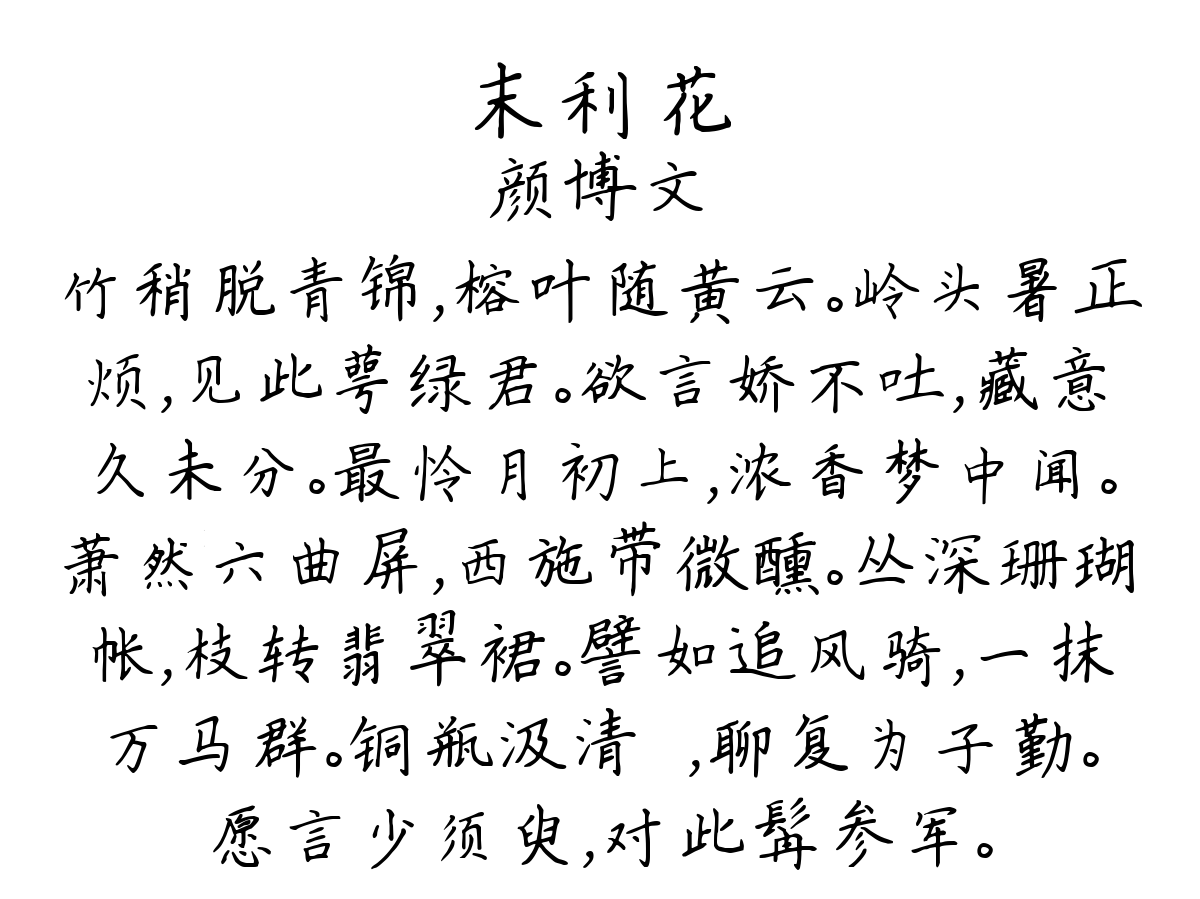 末利花
颜博文
竹稍脱青锦,榕叶随黄云。岭头暑正
烦,见此萼绿君。欲言娇不吐,藏意
久未分。最怜月初上,浓香梦中闻。
萧然六曲屏,西施带微醺。丛深珊瑚
帐,枝转翡翠裙。譬如追风骑,一抹
万马群。铜瓶汲清 ,聊复为子勤。
愿言少须臾,对此髯参军。